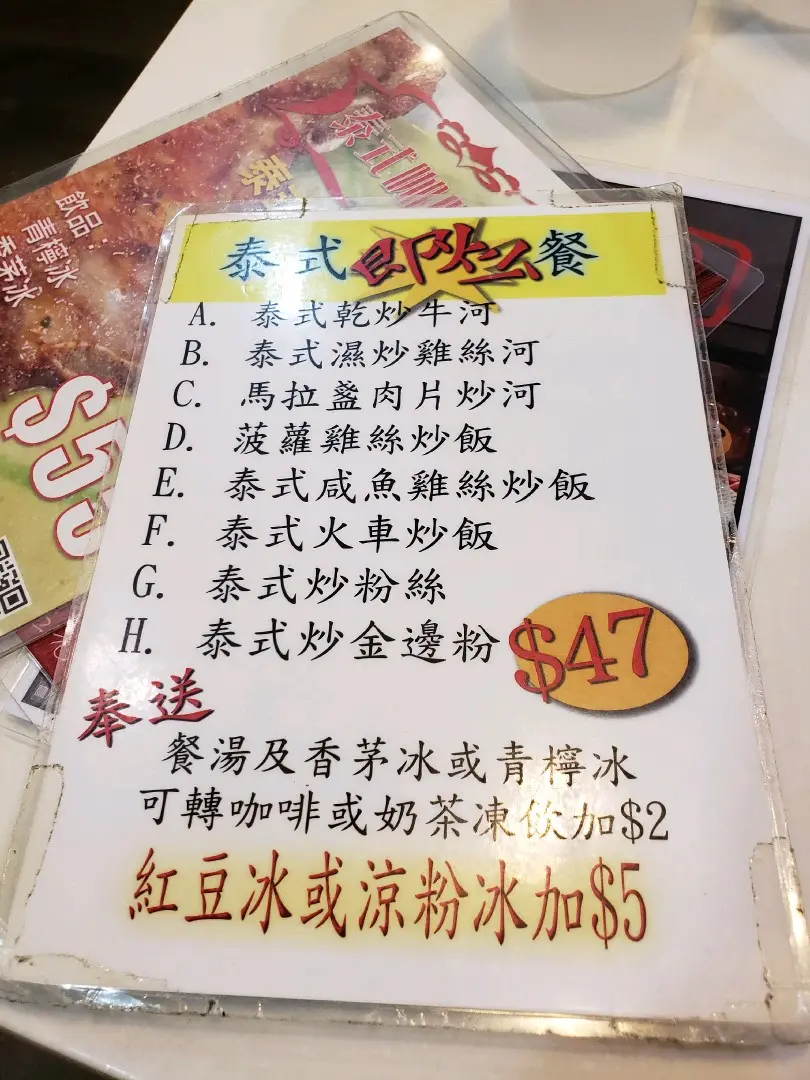 泰式
飲品:
青檸冰
香茅冰
$53
泰式即炒餐
A. 泰式乾炒牛河
B. 泰式濕炒雞絲河
C. 馬拉盞肉片炒河
D. 菠蘿雞絲炒飯
E. 泰式咸魚雞絲炒飯
F. 泰式火車炒飯
G. 泰式炒粉絲
H. 泰式炒金邊粉
$47
奉送
餐湯及香茅冰或青檸冰
可轉咖啡或奶茶凍飲加$2
紅豆冰或涼粉冰加$5